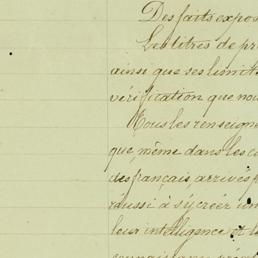 Des faits expos
Les titres de pr
ainsi que ses limit
vérification que nou
Tous les renseign
que, même dans les c
des français, arrivés p
réussi à s'y créer un
leur intelligence et l